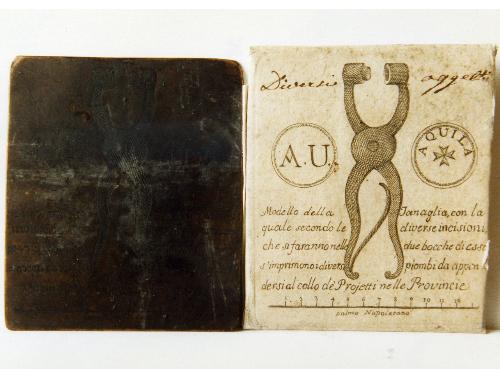 Diversi oggetti
A.U.
AQUILA
Modello della Tanaglia, con la
quale secondo le diverse incisioni
che si faranno nelle due bocche di esse
s'imprimono i diversi piombi da appen
dersi al collo dè Projetti nelle Provincie
1 2 3 4 5 6 7 8 9 10 11 12
palmo Napoletano